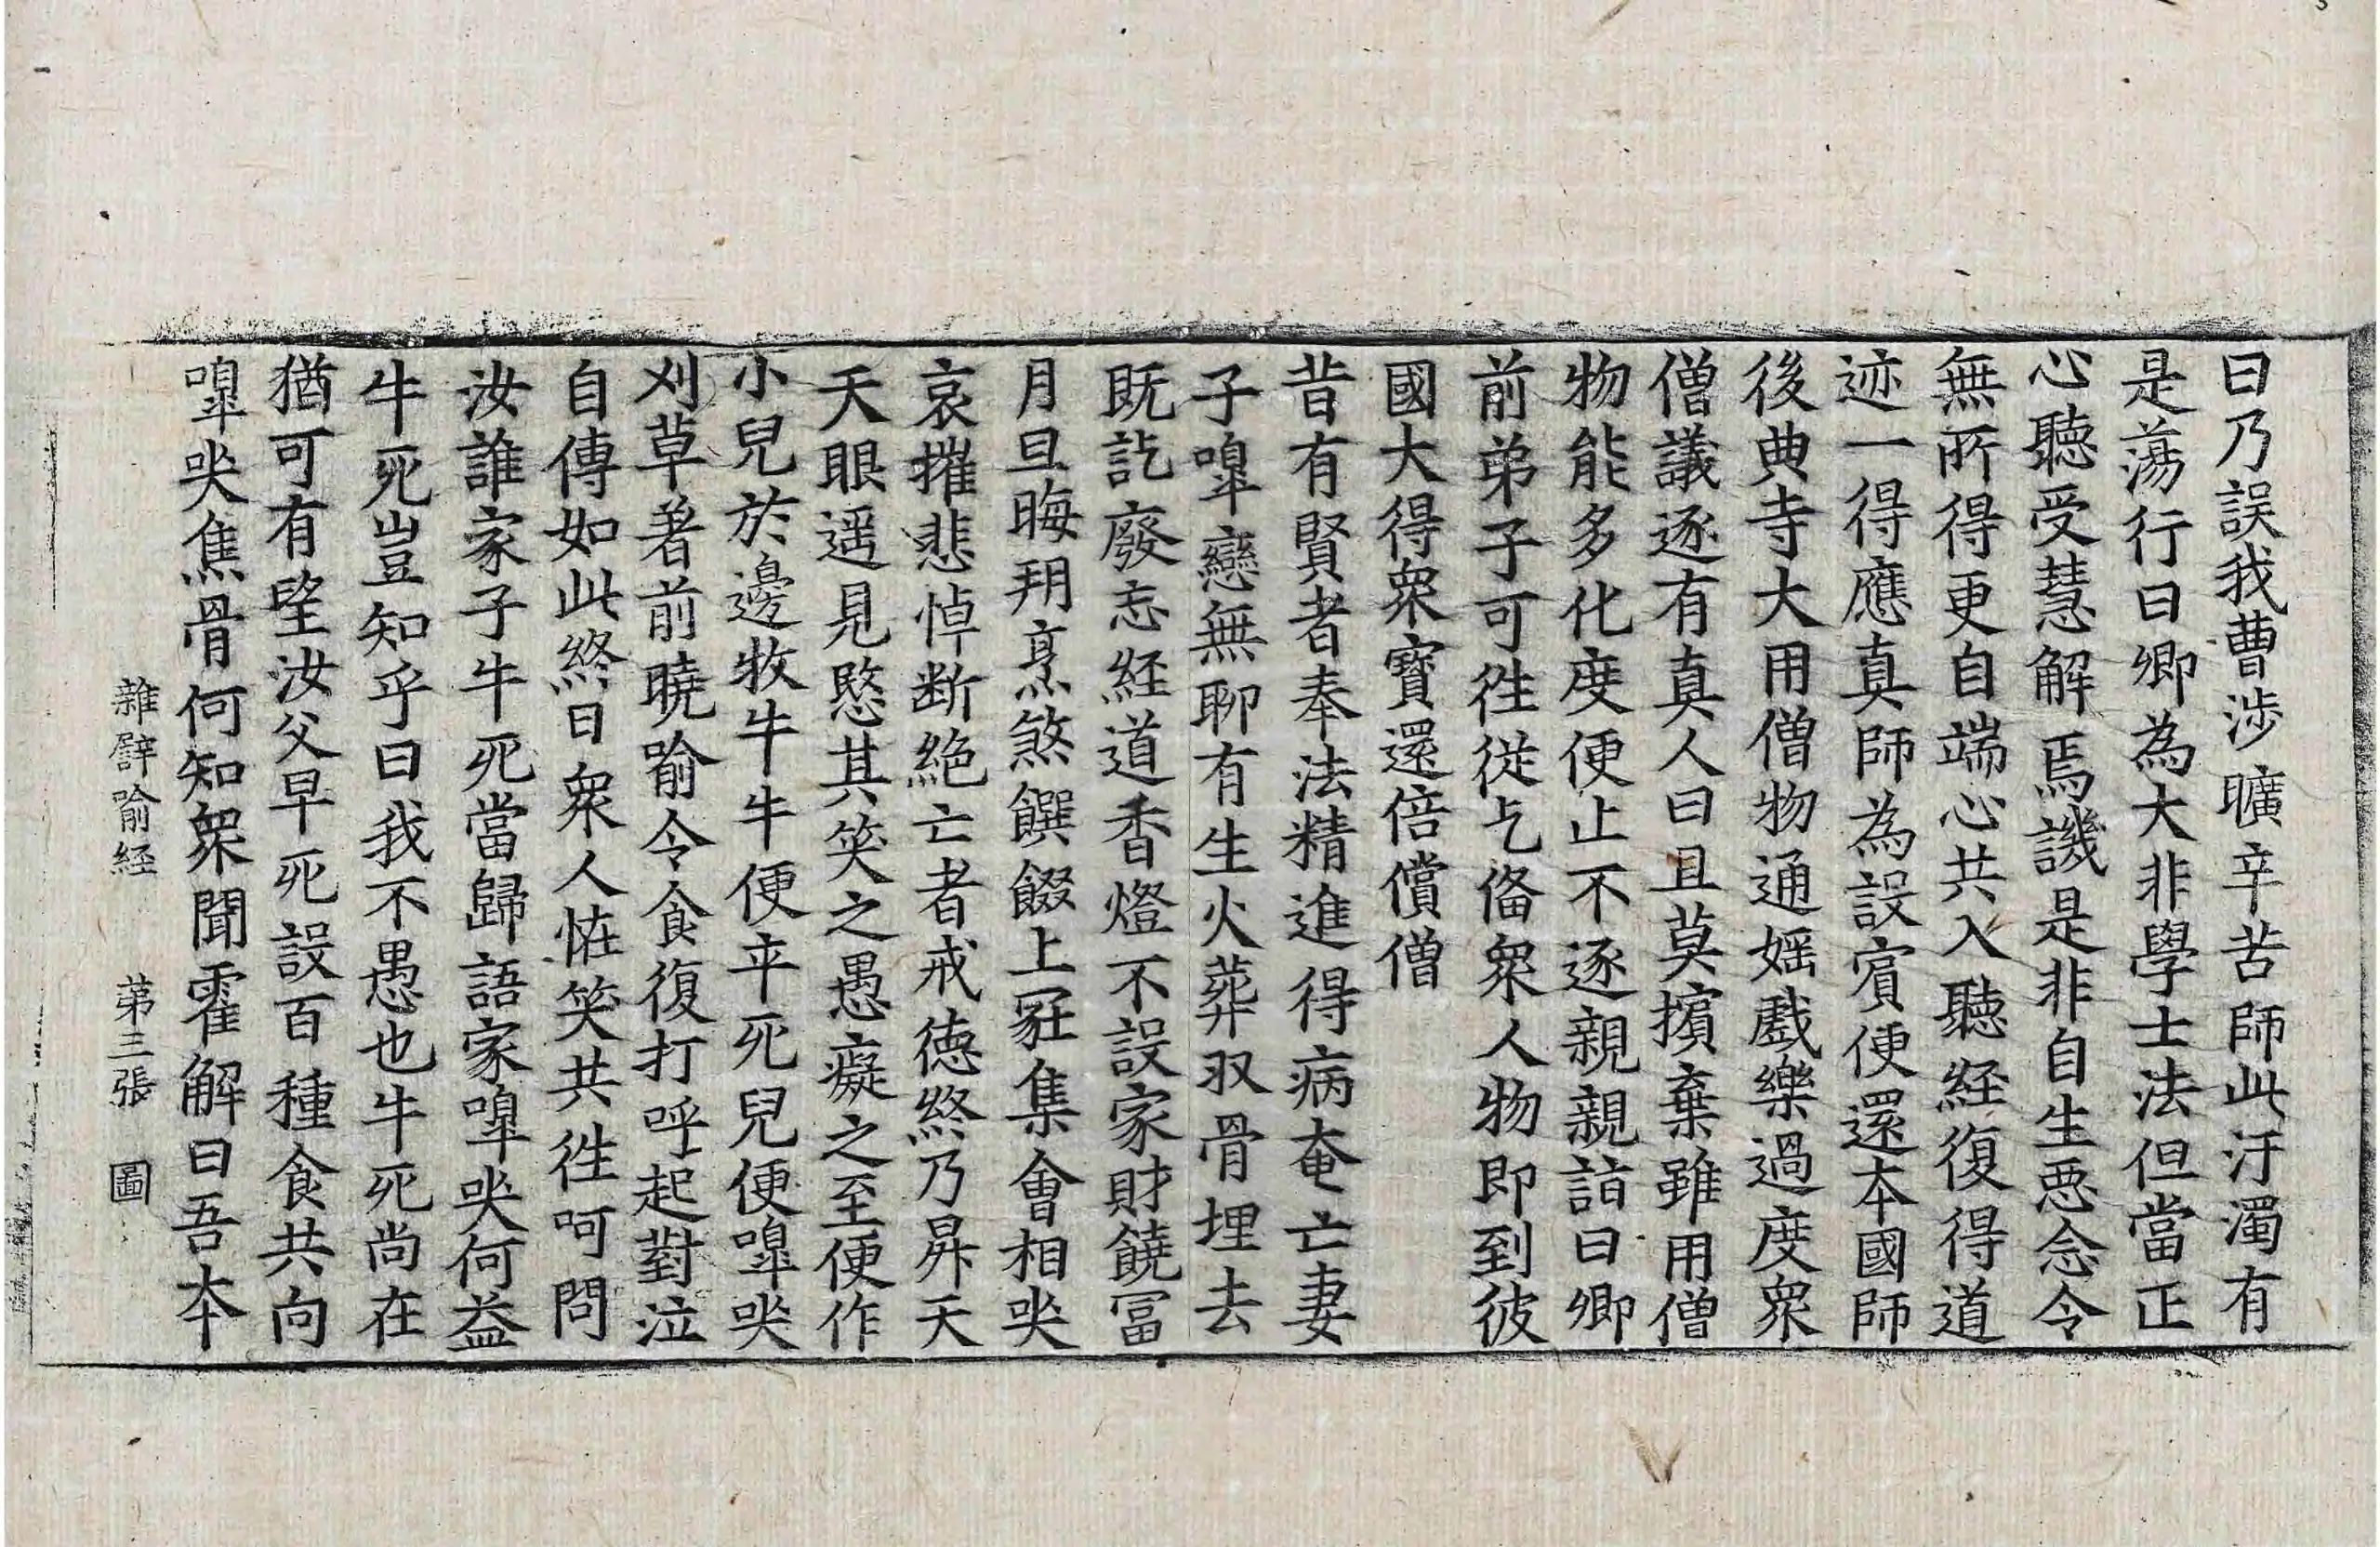 曰乃誤我曹涉曠辛苦師此汙濁有
是蕩行曰卿為大非學士法但當正
心聽受慧解焉譏是非自生惡念令
無所得更自端心共入聽經復得道
迹一得應真師為設賔便還本國師
後典寺大用僧物通婬戲樂過度衆
僧議逐有真人曰且莫擯棄雖用僧
物能多化度便止不逐親親詣曰卿
前弟子可徃從乞俻衆人物即到彼
國大得衆寶還倍償僧
昔有賢者奉法精進得病奄亡妻
子嘷戀無聊有生火葬収骨埋去
既訖廢忘経道香燈不設家財饒冨
月旦晦朔烹煞饌餟上冡集會相哭
哀摧悲悼断絶亡者戒德終乃昇天
天眼遥見愍其笑之愚癡之至便作
小兒於邊牧牛牛便卒死兒便嘷哭
刈草著前曉喻令食復打呼起對泣
自傳如此終日衆人恠笑共徃呵問
汝誰家子牛死當歸語家嘷哭何益
牛死豈知乎曰我不愚也牛死尚在
猶可有望汝父早死設百種食共向
嘷哭焦骨何知衆聞霍解曰吾本
雜譬喻経　第三張　圖